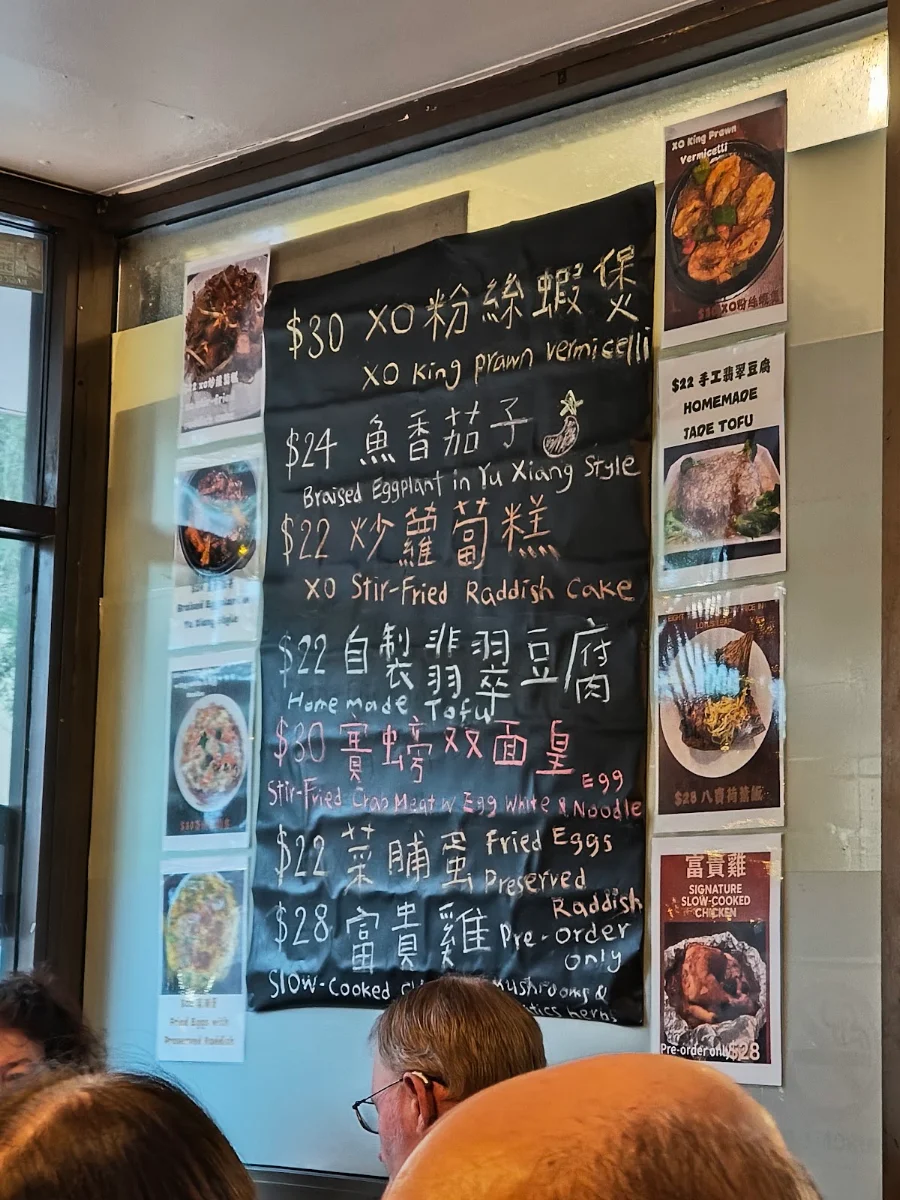 $30 XO粉絲蝦煲
XO King prawn vermicelli
$24 魚香茄子
Braised Eggplant in Yu Xiang Style
$22 炒蘿蔔糕
XO Stir-Fried Raddish Cake
$22 自製翡翠豆腐
Homemade Tofu
$30 賽螃双面皇
Egg
Stir-Fried Crab Meat w Egg White & Noodle
$22 菜脯蛋 Fried Eggs
Preserved
Raddish
$28 富貴雞 Pre-order
only
Slow-Cooked Mushrooms &
herbs
Braised Eggplant in
Yu Xiang Style
Fried Eggs with
Preserved Raddish
XO King Prawn
Vermicelli
XO粉絲蝦
$22 手工翡翠豆腐
HOMEMADE
JADE TOFU
RICE IN
LOTUS LEAF
$28 八寶荷葉飯
富貴雞
SIGNATURE
SLOW-COOKED
CHICKEN
Pre-order only $28